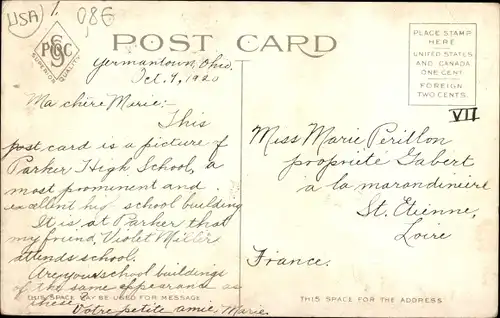 USA
1.
0,8€
PCO
SUPERIOR QUALITY
POST CARD
PLACE STAMP
HERE
UNITED STATES
AND CANADA
ONE CENT
FOREIGN
TWO CENTS.
VII
Germantown, Ohio.
Oct. 9, 1920
Ma chère Marie:-
This
post card is a picture of
Parker High School, a
most prominent and
excellent his school building
It is at Parker that
my friend, Violet Miller
attends school.
Are your school buildings
of the same appearance as
these?
Votre petite amie, Marie.
THIS SPACE MAY BE USED FOR MESSAGE
Miss Marie Perillon
propriété Gabert
a la marandiniere
St. Etienne,
Loire
France.
THIS SPACE FOR THE ADDRESS